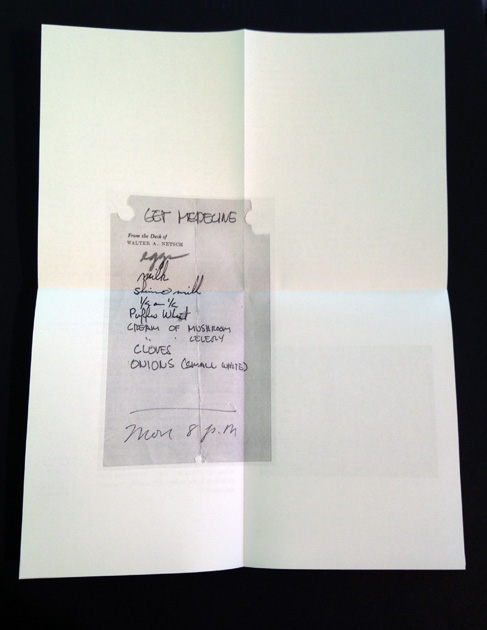 GET MEDECINE
From the Desk of
WALTER A. NETSCH
eggs
milk
skim milk
1/2 n 1/2
Puffed Wheat
CREAM OF MUSHROOM
" " CELERY
CLOVES
ONIONS (SMALL WHITE)
Mon 8 p.m